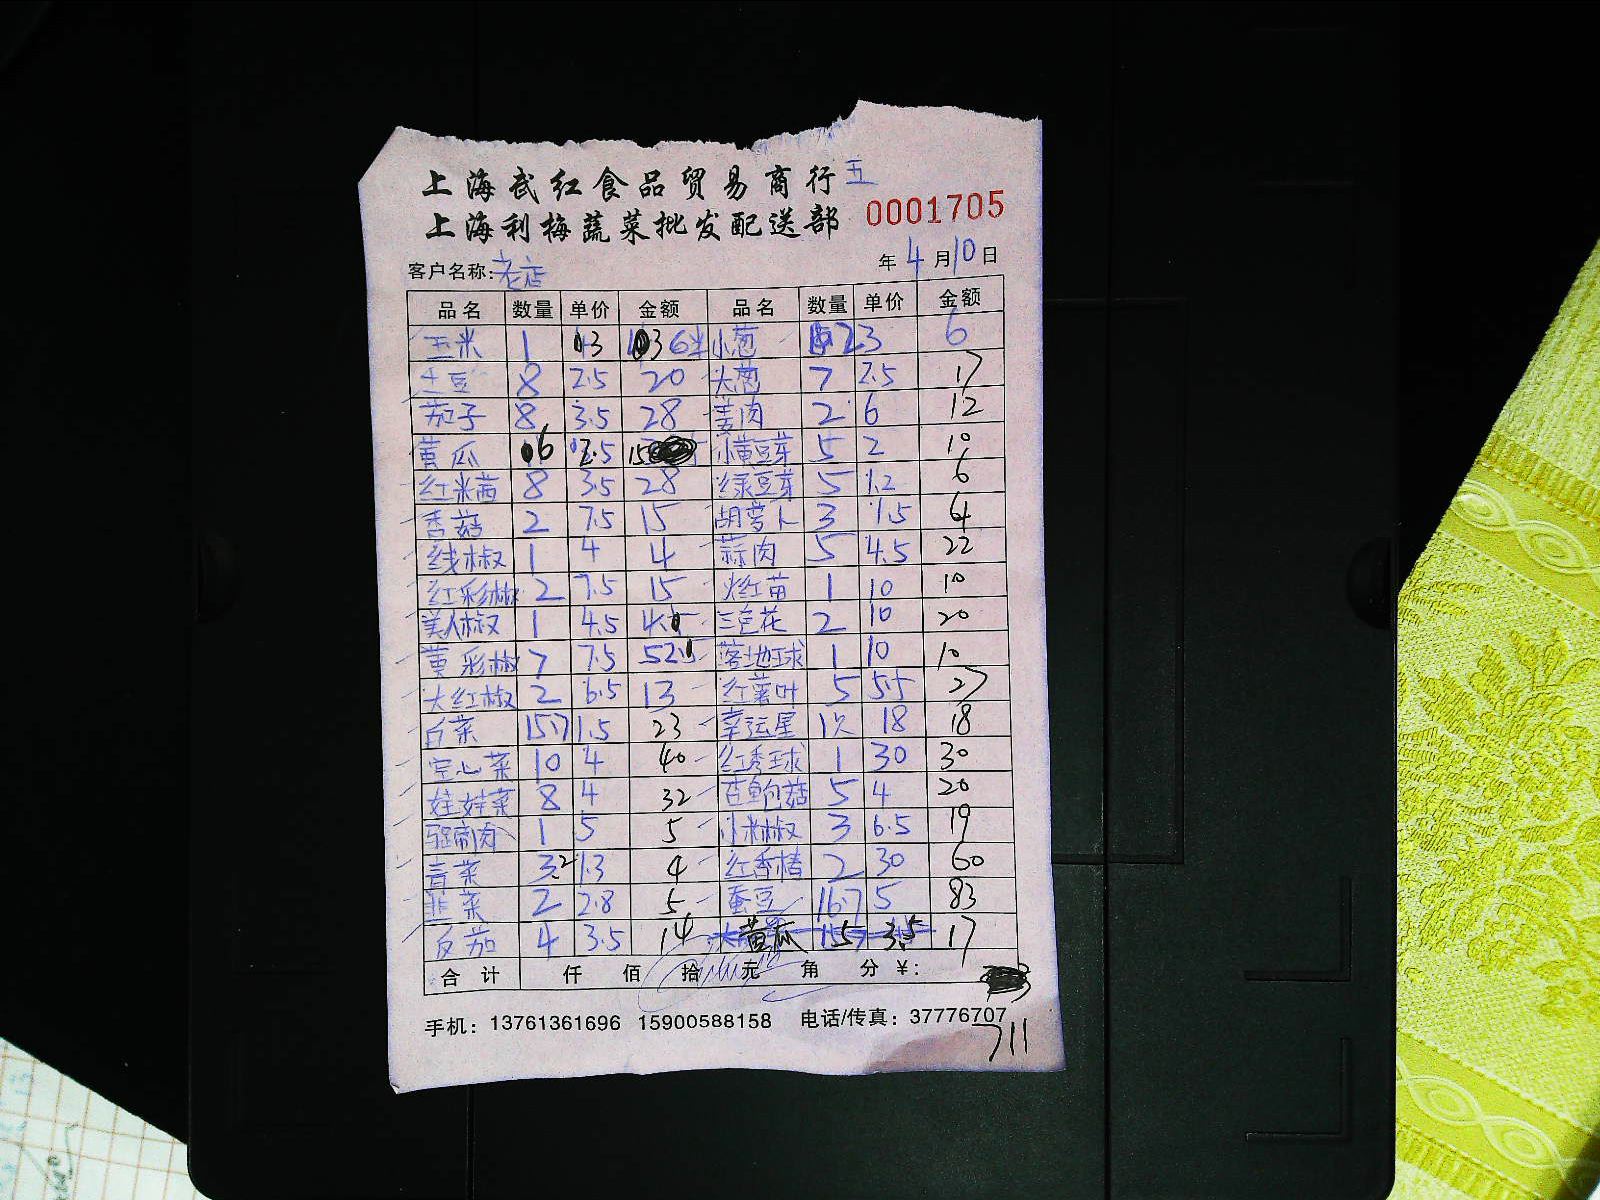 上海武红食品贸易商行 五
上海利梅蔬菜批发配送部 0001705
客户名称:老店 年4月10日
品名 数量 单价 金额 品名 数量 单价 金额
玉米 1 3 3 小葱 2 3 6
土豆 8 2.5 20 大葱 7 2.5 17
茄子 8 3.5 28 姜肉 2 6 12
黄瓜 6 2.5 15 小黄豆芽 5 2 10
红米茜 8 3.5 28 绿豆芽 5 1.2 6
香菇 2 7.5 15 胡萝卜 3 1.5 4
线椒 1 4 4 蒜肉 5 4.5 22
红彩椒 2 7.5 15 苗 1 10 10
美人椒 1 4.5 4 三色花 2 10 20
黄彩椒 7 7.5 52.5 落地球 1 10 10
大红椒 2 6.5 13 红薯叶 5 5.5 27
白菜 15.7 1.5 23 幸运星 1 18 18
空心菜 10 4 40 红秀球 1 30 30
娃娃菜 8 4 32 杏鲍菇 5 4 20
1 5 5 小米椒 3 6.5 19
青菜 3.2 1.3 4 红香椿 2 30 60
韭菜 2 2.8 5 蚕豆 16.7 5 83
反茄 4 3.5 14 黄瓜 5 3.5 17
合计 仟 佰 拾 元 角 分 ¥:
手机: 13761361696 15900588158 电话/传真: 37776707
711